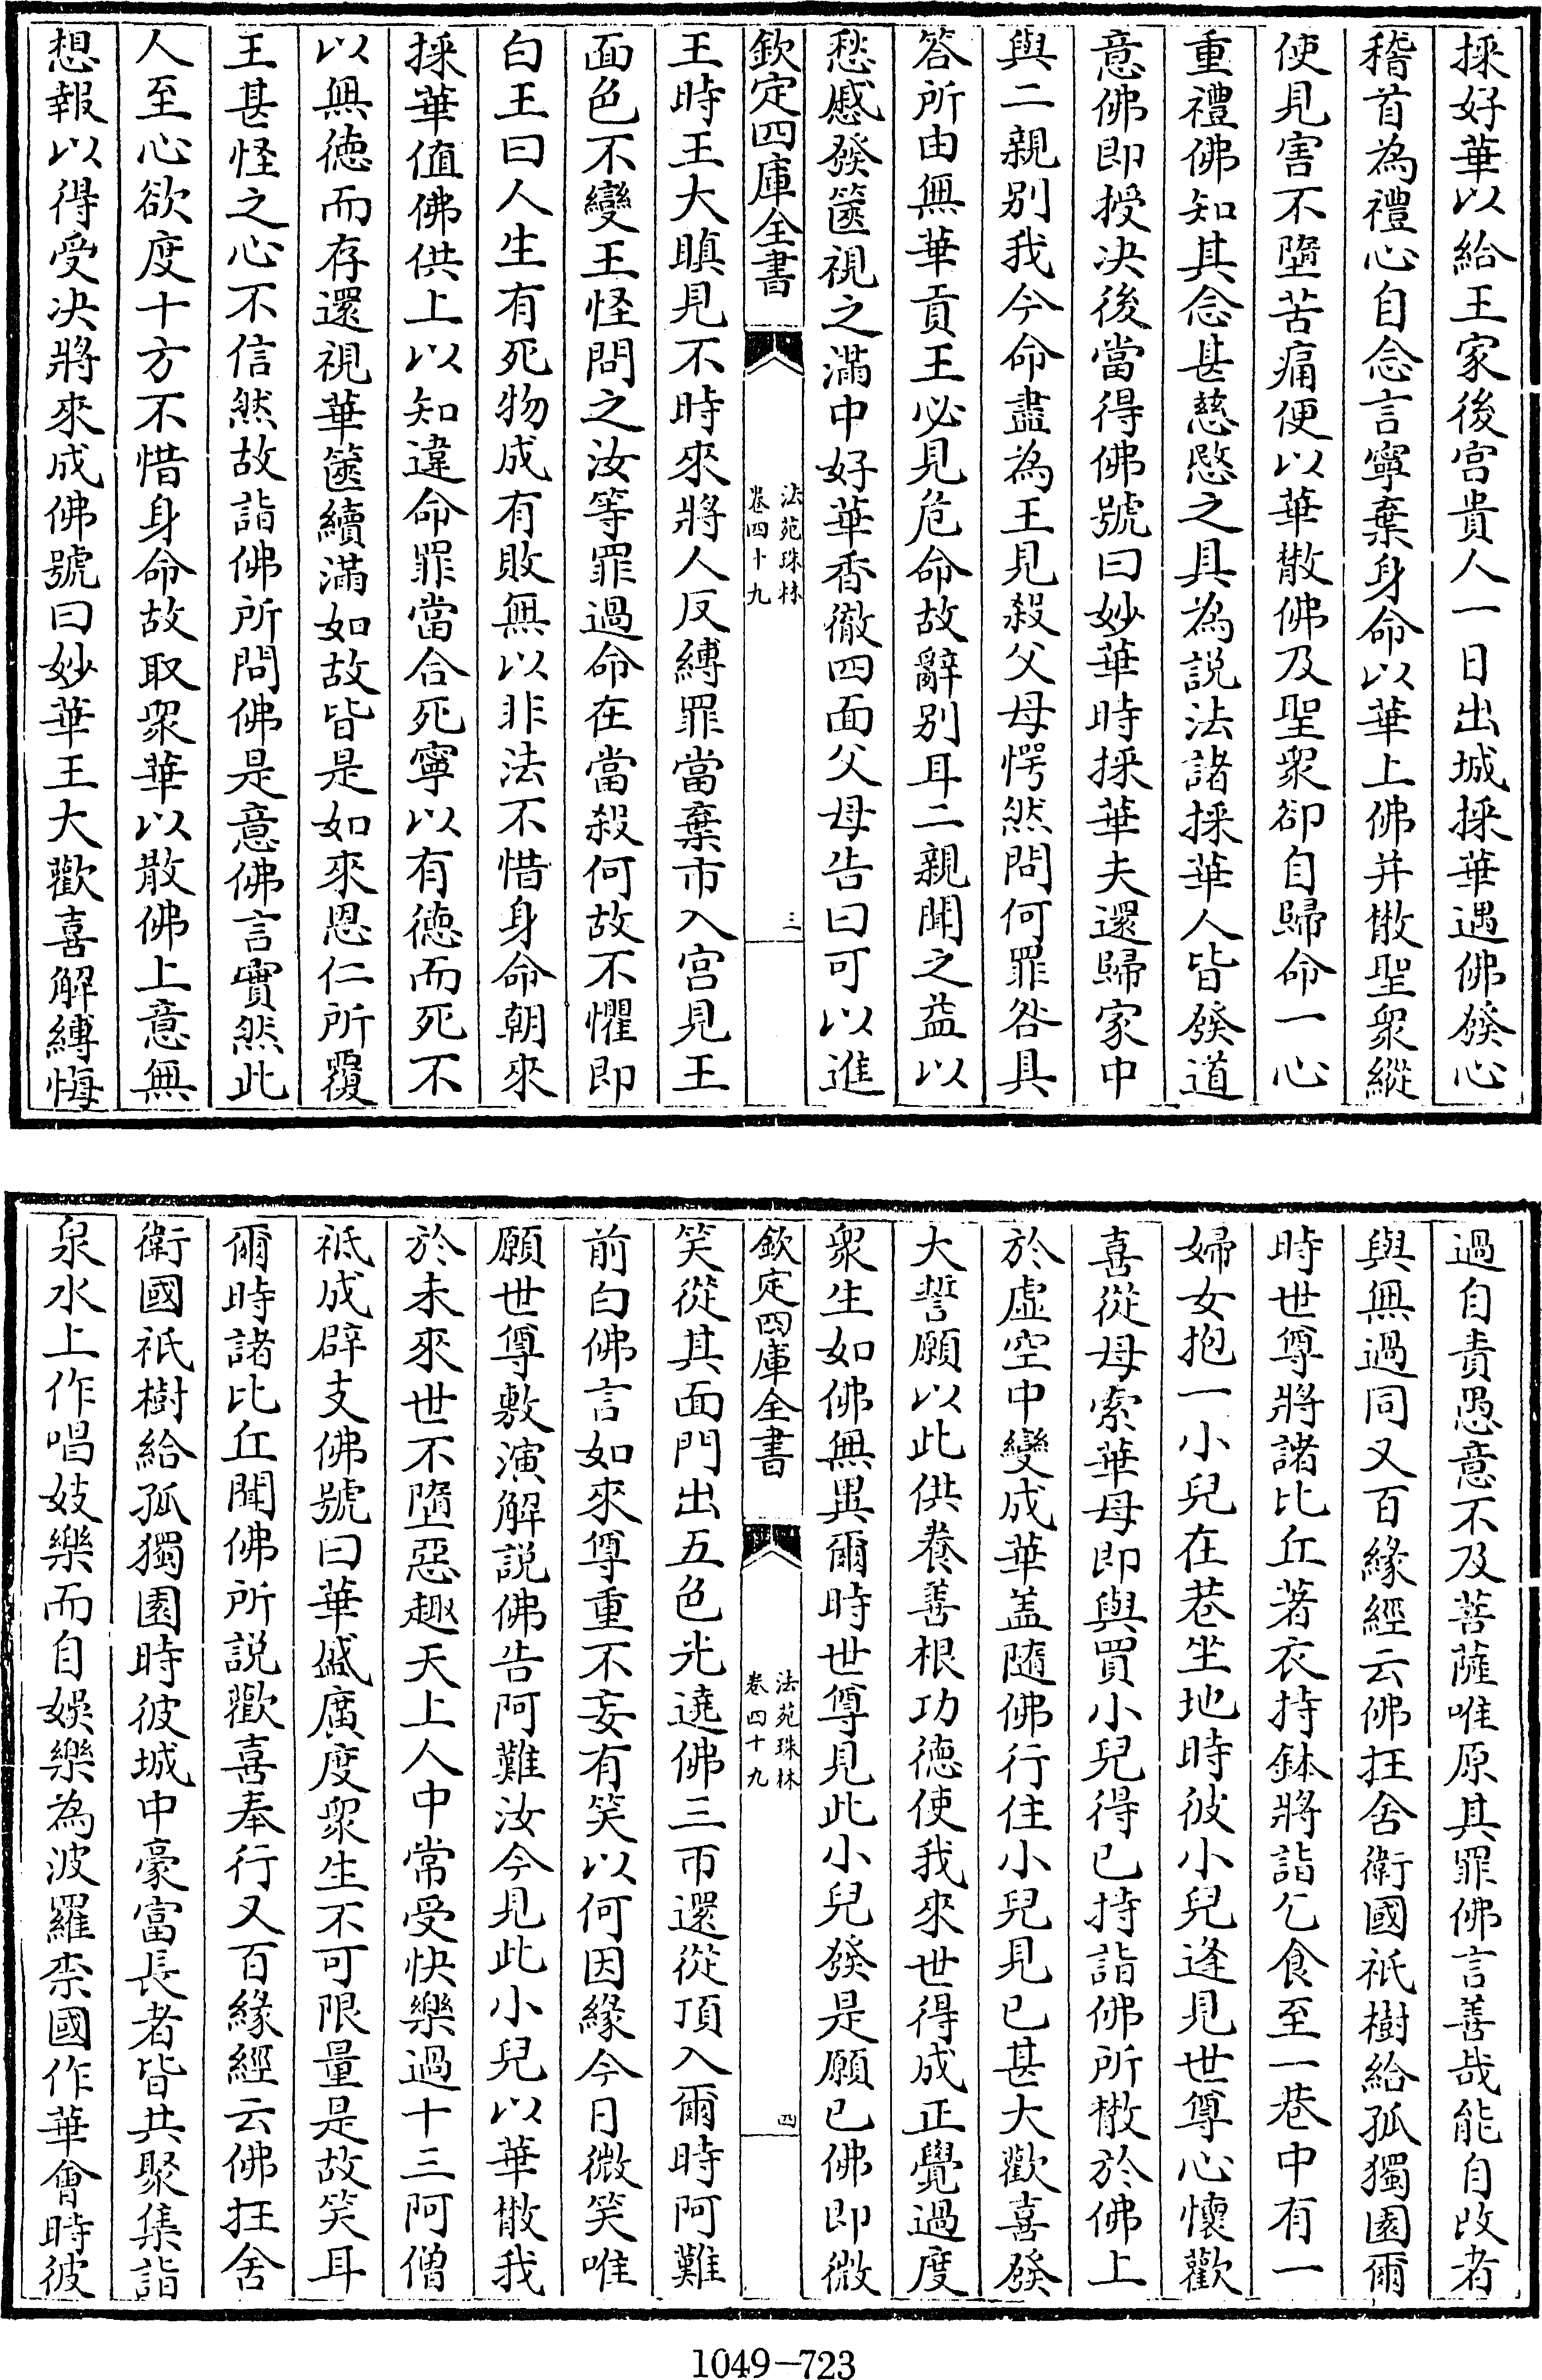 採好華以給王家後宫貴人一日出城採華遇佛發心
稽首為禮心自念言寧棄身命以華上佛并散聖衆縱
使見害不墮苦痛便以華散佛及聖衆卻自歸命一心
重禮佛知其念甚慈愍之具為説法諸採華人皆發道
意佛即授決後當得佛號曰妙華時採華夫還歸家中
與二親别我今命盡為王見殺父母愕然問何罪咎具
答所由無華貢王必見危命故辭别耳二親聞之益以
愁慼發篋視之滿中好華香徹四面父母告曰可以進
欽定四庫全書
法苑珠林
卷四十九
三
王時王大瞋見不時來將人反縛罪當棄市入宫見王
面色不變王怪問之汝等罪過命在當殺何故不懼即
白王曰人生有死物成有敗無以非法不惜身命朝來
採華值佛供上以知違命罪當合死寧以有徳而死不
以無徳而存還視華篋續滿如故皆是如來恩仁所覆
王甚怪之心不信然故詣佛所問佛是意佛言實然此
人至心欲度十方不惜身命故取衆華以散佛上意無
想報以得受決將來成佛號曰妙華王大歡喜解縛悔
過自責愚意不及菩薩唯原其罪佛言善哉能自改者
與無過同又百緣經云佛在舍衛國祇樹給孤獨園爾
時世尊將諸比丘著衣持鉢將詣乞食至一巷中有一
婦女抱一小兒在巷坐地時彼小兒逢見世尊心懷歡
喜從母索華母即與買小兒得已持詣佛所散於佛上
於虚空中變成華盖隨佛行住小兒見已甚大歡喜發
大誓願以此供養善根功徳使我來世得成正覺過度
衆生如佛無異爾時世尊見此小兒發是願已佛即微
欽定四庫全書
法苑珠林
卷四十九
四
笑從其面門出五色光遶佛三帀還從頂入爾時阿難
前白佛言如來尊重不妄有笑以何因緣今日微笑唯
願世尊敷演解説佛告阿難汝今見此小兒以華散我
於未來世不墮惡趣天上人中常受快樂過十三阿僧
祇成辟支佛號曰華盛廣度衆生不可限量是故笑耳
爾時諸比丘聞佛所説歡喜奉行又百緣經云佛在舍
衛國祇樹給孤獨園時彼城中豪富長者皆共聚集詣
泉水上作唱妓樂而自娯樂為波羅柰國作華會時彼
1049-723